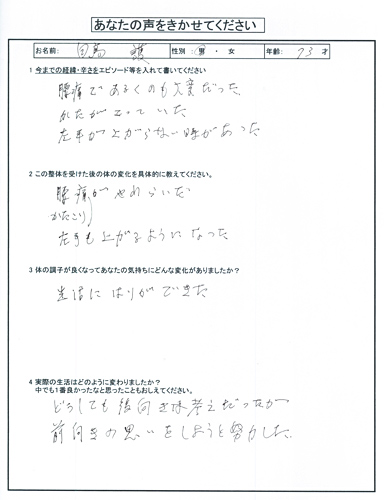 あなたの声をきかせてください
お名前: 性別: 男・女 年齢: 73 才
1 今までの経緯・辛さをエピソード等を入れて書いてください
腰痛であるくのも大変だった
かたがこっていた
左手が上がらない時があった
2 この整体を受けた後の体の変化を具体的に教えてください。
腰痛がやわらいだ
かたこり
左手も上がるようになった
3 体の調子が良くなってあなたの気持ちにどんな変化がありましたか？
生活にはりができた
4 実際の生活はどのように変わりましたか？
中でも1番良かったなと思ったこともおしえてください。
どうしても後向きな考えだったが
前向きの思いをしようと努力した.